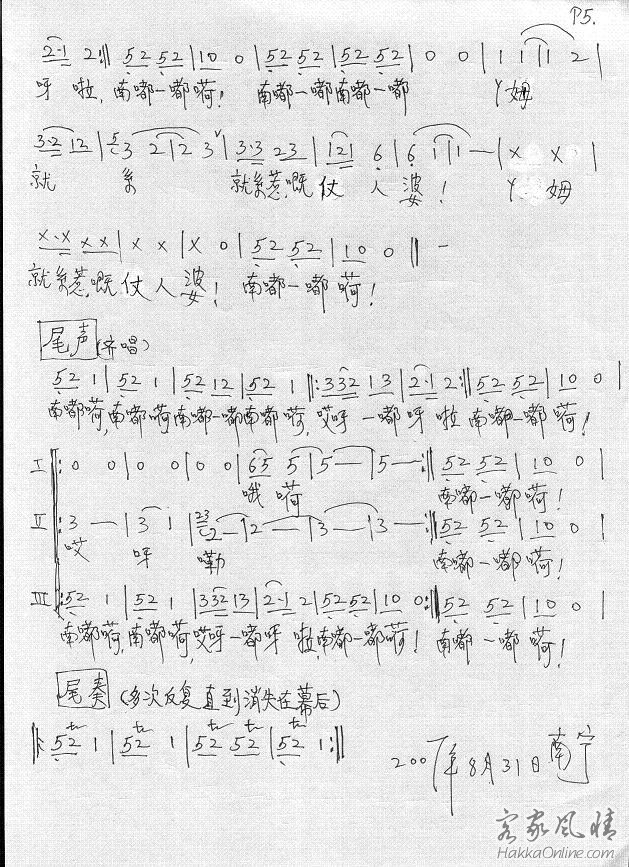 P5.
2·1 2 :‖ 52 52 | 10 0 | 52 52 | 52 52 | 0 0 | 1 1 | 1 2 |
呀 啦, 南嘟一嘟嗬! 南嘟一嘟南嘟一嘟 丫姆
3·2 12 | 5 3 2 | 2 3 ˅ | 3·3 23 | 121 6 | 6 1 | 1 — | X X |
就 系 就系惹嘅仗 人 婆! 丫姆
X·X XX | X X | X 0 | 52 52 | 10 0 ‖
就系惹嘅仗人 婆! 南嘟一嘟嗬!
尾声 (齐唱)
52 1 | 52 1 | 52 12 | 52 1 ‖: 332 13 | 2·1 2 :‖ 52 52 | 10 0 |
南嘟嗬,南嘟嗬南嘟一嘟南嘟嗬,哎呀一嘟呀 啦 南嘟一嘟嗬!
I ‖: 0 0 | 0 0 | 0 0 | 65 5 | 5 — | 5 — :‖ 52 52 | 10 0 |
哦嗬 南嘟一嘟嗬!
II 3 — | 3 1 | 23 2 — | 2 — | 3 — | 3 — :‖ 52 52 | 10 0 |
哎 呀 嘞 南嘟一嘟嗬!
III ‖: 52 1 | 52 1 | 332 13 | 2·1 2 | 52 52 | 10 0 :‖ 52 52 | 10 0 |
南嘟嗬,南嘟嗬,哎呀一嘟呀 啦,南嘟一嘟嗬! 南嘟一嘟嗬!
尾奏 (多次反复直到消失在幕后)
‖: 52 1 | 52 1 | 52 52 | 52 1 :‖
2007年8月31日南宁
客家风情
HakkaOnline.com